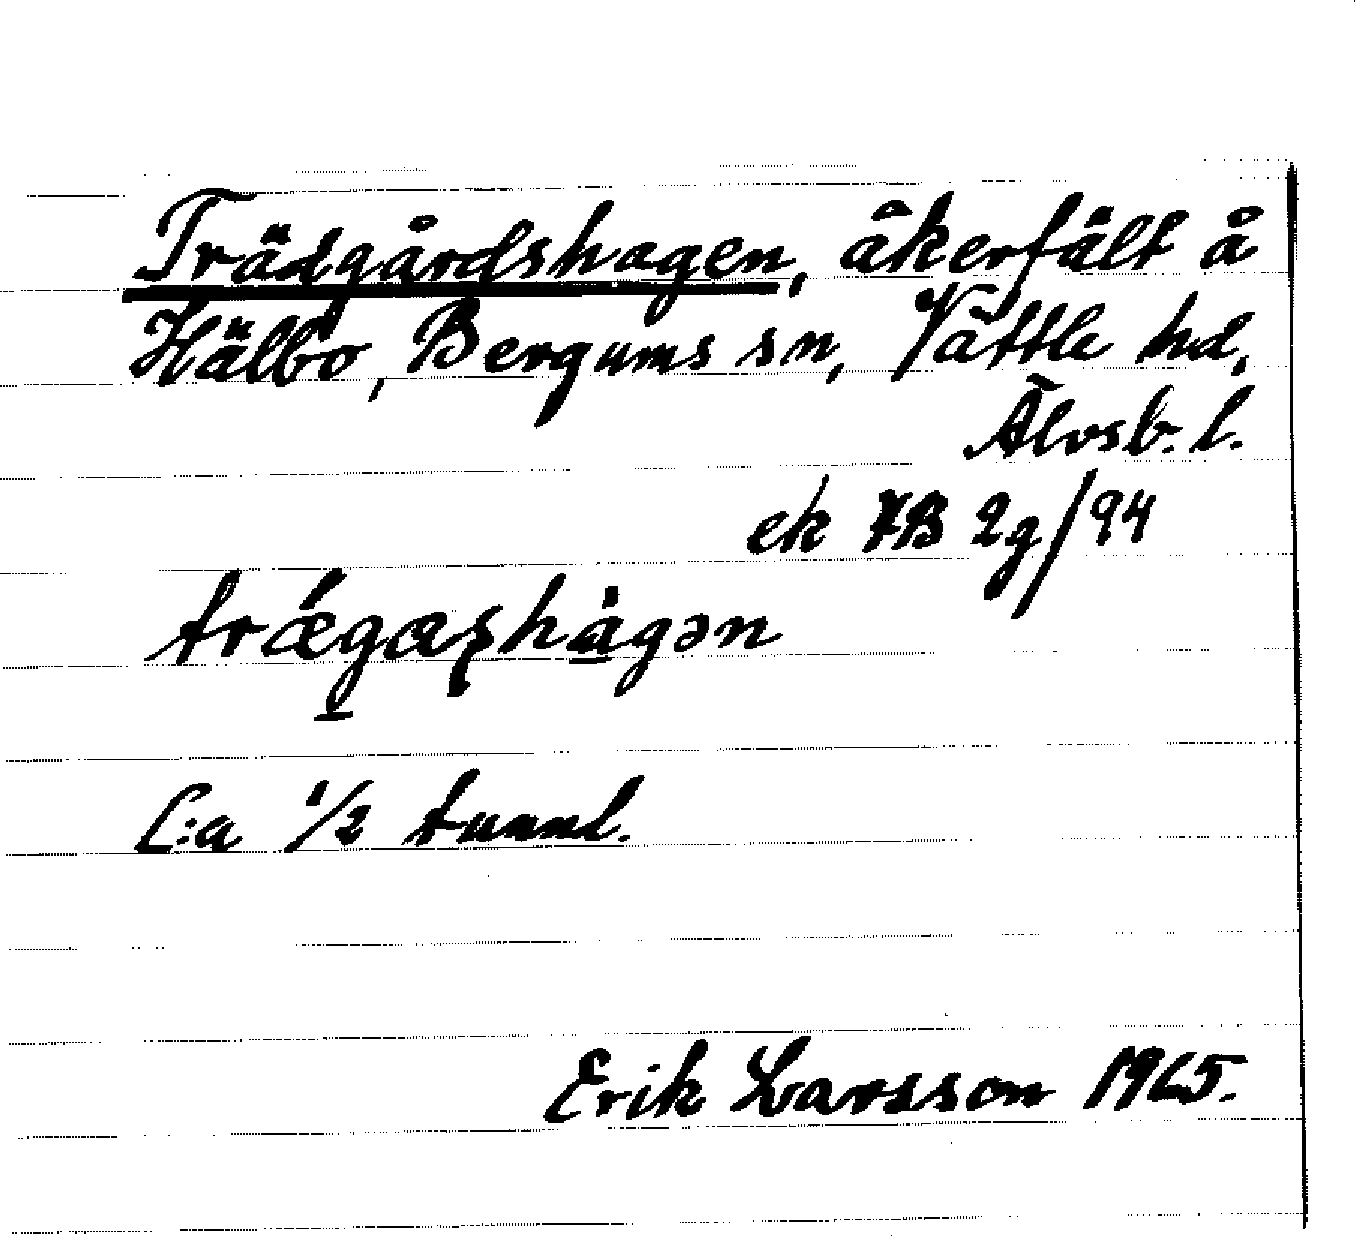 Trädgårdshagen, åkerfält å
Hälbo, Bergums sn, Vättle hd,
Älvsb. l.
ek 7B 2g/94
trǽgæshågən
C:a 1/2 tunnl.
Erik Larsson 1965.